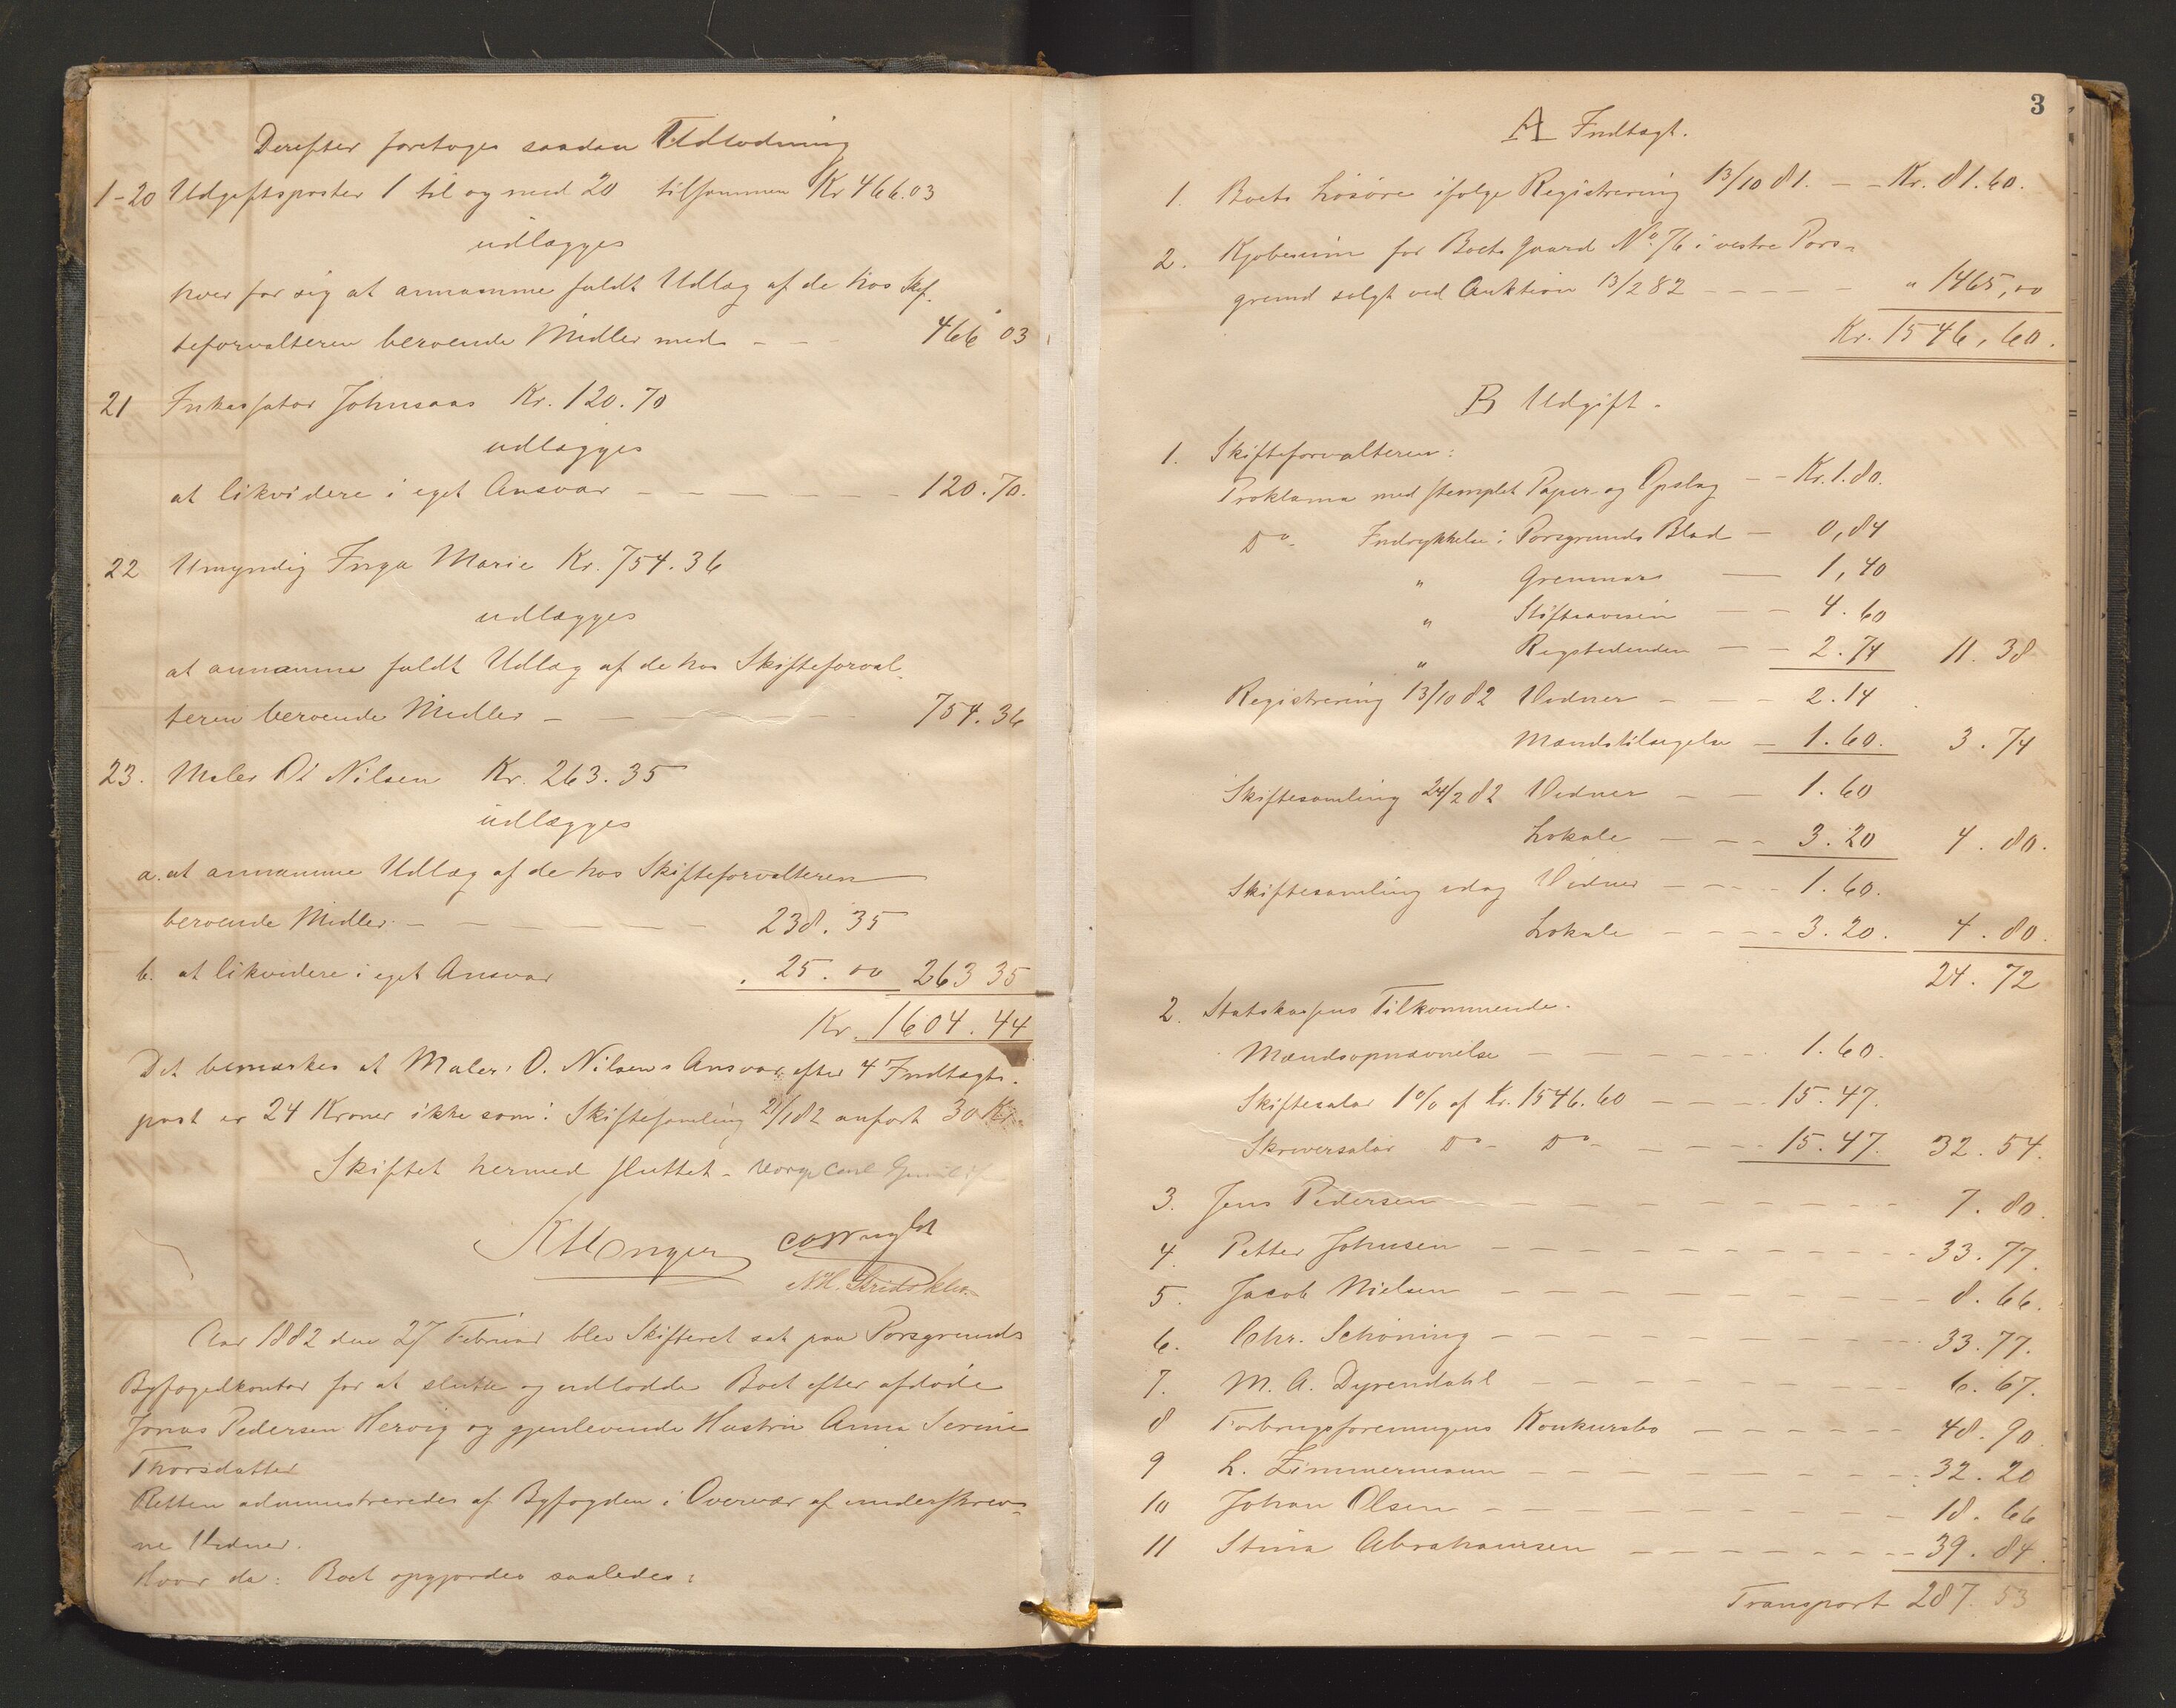 Derefter foretoges saadan Udlodning
1-20 Udgiftsposter 1 til og med 20 tilsammen Kr 466.03
udlægges
hver for sig at annamme fuldt Udlæg af de hos Skif-
teforvalteren beroende Midler med - - 466 03
21 Inkassator Johnsaas Kr. 120.70
udlægges
at likvidere i eget Ansvar - - - - - 120.70.
22 Umyndig Inga Marie Kr. 754.36
udlægges
at annamme fuldt Udlæg af de hos Skifteforval-
teren beroende Midler - - - - - 754.36
23. Maler Ol Nilsen Kr. 263.35
udlægges
a. at annamme Udlæg af de hos Skifteforvalteren
beroende Midler - - - - - 238.35
b. at likvidere i eget Ansvar 25.00 263 35
Kr. 1604.44
Det bemærkes at Maler O. Nilsens Ansvar efter 4 Indtægts-
post er 24 Kroner ikke som i Skiftesamling 21/1 82 anført 30 Kr.
Skiftet hermed sluttet -
Aar 1882 den 27 Februar blev Skifteret sat paa Porsgrunds
Byfogedkontor for at slutte og udlodde Boet efter afdøde
Jonas Pedersen Hervig og gjenlevende Hustru Anna Serine
Thorsdatter
Retten administreredes af Byfogden i Overvær af underskrev-
ne Vidner.
Hvor da: Boet opgjordes saaledes:
3
A Indtægt.
1. Boets Løsøre ifølge Registrering 13/10 81. - - Kr. 81.60.
2. Kjøbesum for Boets Gaard No. 76 i vestre Pors-
grund solgt ved Auktion 13/2 82 - - - - " 1465,00
Kr. 1546,60.
B Udgift.
1. Skifteforvalteren:
Proklama med stemplet Papir og Opslag - - Kr. 1.80.
Do. Indrykkelse i Porsgrunds Blad - 0,84
" Grenmar - 1,40
" Stiftsavisen - - 4.60
" Rigstidenden - - 2.74 11.38
Registrering 13/10 82 Vidner - - 2.14
Mændstilsigelse - 1.60. 3.74
Skiftesamling 24/2 82 Vidner - - 1.60
Lokale - - - 3.20 4.80.
Skiftesamling idag Vidner - - - 1.60.
Lokale - - - - 3.20. 4.80.
24.72
2. Statskassens Tilkommende.
Mændsopnævnelse - - - - - 1.60.
Skiftesalar 1 % af Kr. 1546.60 - - - - 15.47.
Skriversalar Do - Do - - - - 15.47. 32.54.
3. Jens Pedersen - - - - - - - - 7.80.
4. Petter Johnsen - - - - - - - - 33.77.
5. Jacob Nielsen - - - - - - - - 8.66.
6. Chr. Schøning - - - - - - - - 33.77.
7. M. A. Dyrendahl - - - - - - - 6.67.
8 Forbrugsforeningens Konkursbo - - - - - - 48.90
9 L. Zimmermann - - - - - - - 32.20
10 Johan Olsen - - - - - - - - 18.66
11 Stina Abrahamsen - - - - - - - 39.84.
Transport 287.53